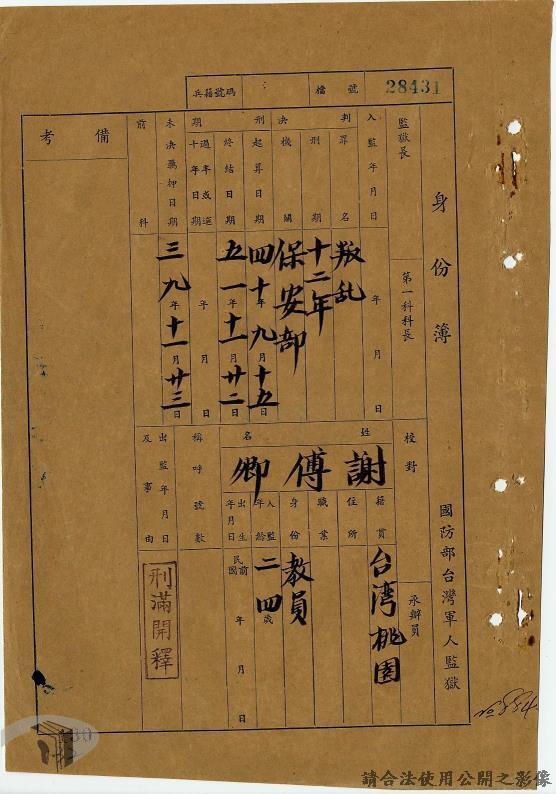 兵籍號碼
檔號 28431
身份簿
國防部台灣軍人監獄
監獄長
第一科科長
校對
承辦員
入監年月日 年 月 日
判決
罪名 叛乱
刑期 十二年
機關 保安部
刑期
起算日期 四十年九月十五日
終結日期 五一年十一月廿二日
過半或逾十年日期 年 月 日
未決羈押日期 三九年十一月廿三日
前科
備考
姓名 謝傅卿
籍貫 台湾桃園
住所
職業
身份 教員
入監年齡 二四歲
出生年月日 民前國 年 月 日
稱呼號數
出監年月日及事由 刑滿開釋
No 884
30
請合法使用公開之影像